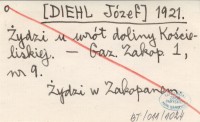 [DIEHL Józef] 1921.
Żydzi u wrót doliny Koście-
liskiej. — Gaz. Zakop 1,
nr 9.
Żydzi w Zakopanem
BT/OM/1044